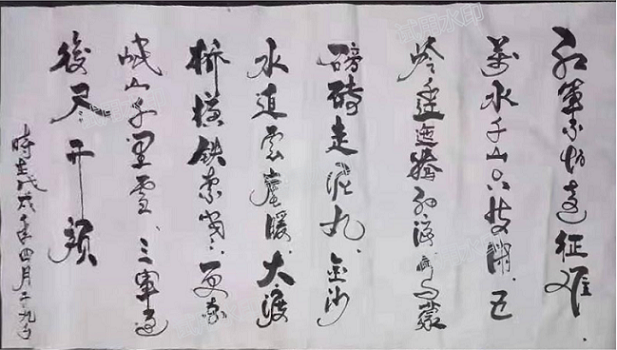 红軍不怕远征难
萬水千山只等闲、五
岭逶迤腾细浪乌蒙
磅礴走泥丸、金沙
水拍云崖暖、大渡
桥横铁索寒、更喜
岷山千里雪、三军过
後尽开颜
時在戊戌年四月二十九日